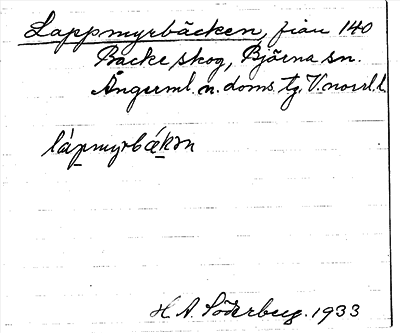 Lappmyrbäcken, från 140
Backe skog, Björna sn.
Ångerml. n. doms. tg. V. norrl. l.
låpmyrbäkən
H. A. Söderberg. 1933